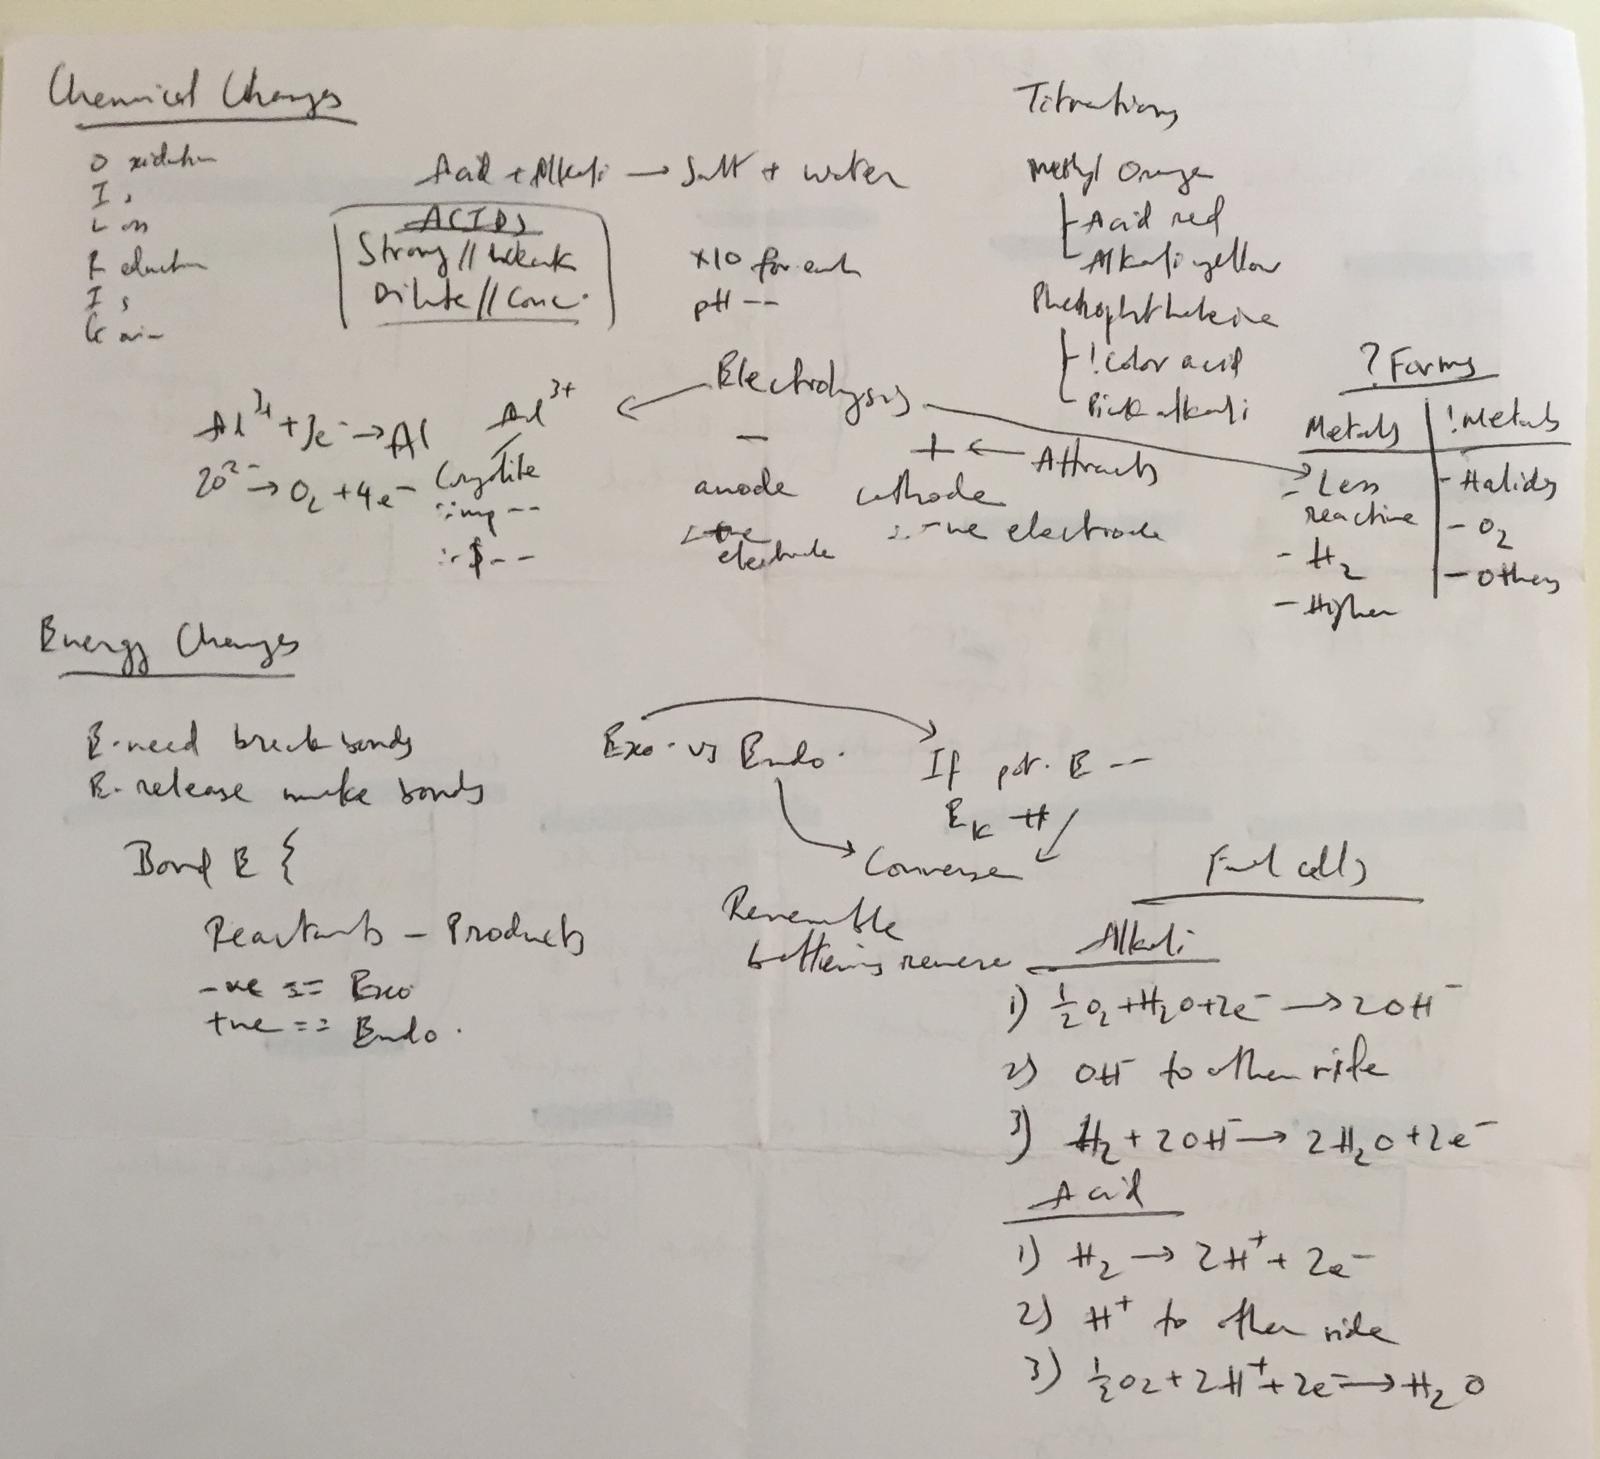 Chemical Changes
Oxidation
Is
Loss
Reduction
Is
Gain
Acid + Alkali → Salt + water
ACIDS
Strong // Weak
Dilute // Conc.
×10 for each
pH --
Titrations
Methyl Orange
Acid red
Alkali yellow
Phenophthaleine
!color acid
Pink alkali
Electrolysis
Al³⁺ + 3e⁻ → Al
2O²⁻ → O₂ + 4e⁻
Al³⁺
Cryolite
∴ mp --
∴ $ --
−
anode
electrode
+ ← Attracts
cathode
∴ -ve electrode
? Forms
Metals
- Less
reactive
- H₂
- Higher
!Metals
- Halides
- O₂
- Others
Energy Changes
E. need break bonds
E. release make bonds
Bond E {
Reactants - Products
-ve == Exo
+ve == Endo.
Exo. vs Endo.
If pot. E --
Eₖ ++
Converse
Reversible
batteries reverse
Fuel cells
Alkali
1) ½O₂ + H₂O + 2e⁻ → 2OH⁻
2) OH⁻ to other side
3) H₂ + 2OH⁻ → 2H₂O + 2e⁻
Acid
1) H₂ → 2H⁺ + 2e⁻
2) H⁺ to other side
3) ½O₂ + 2H⁺ + 2e⁻ → H₂O